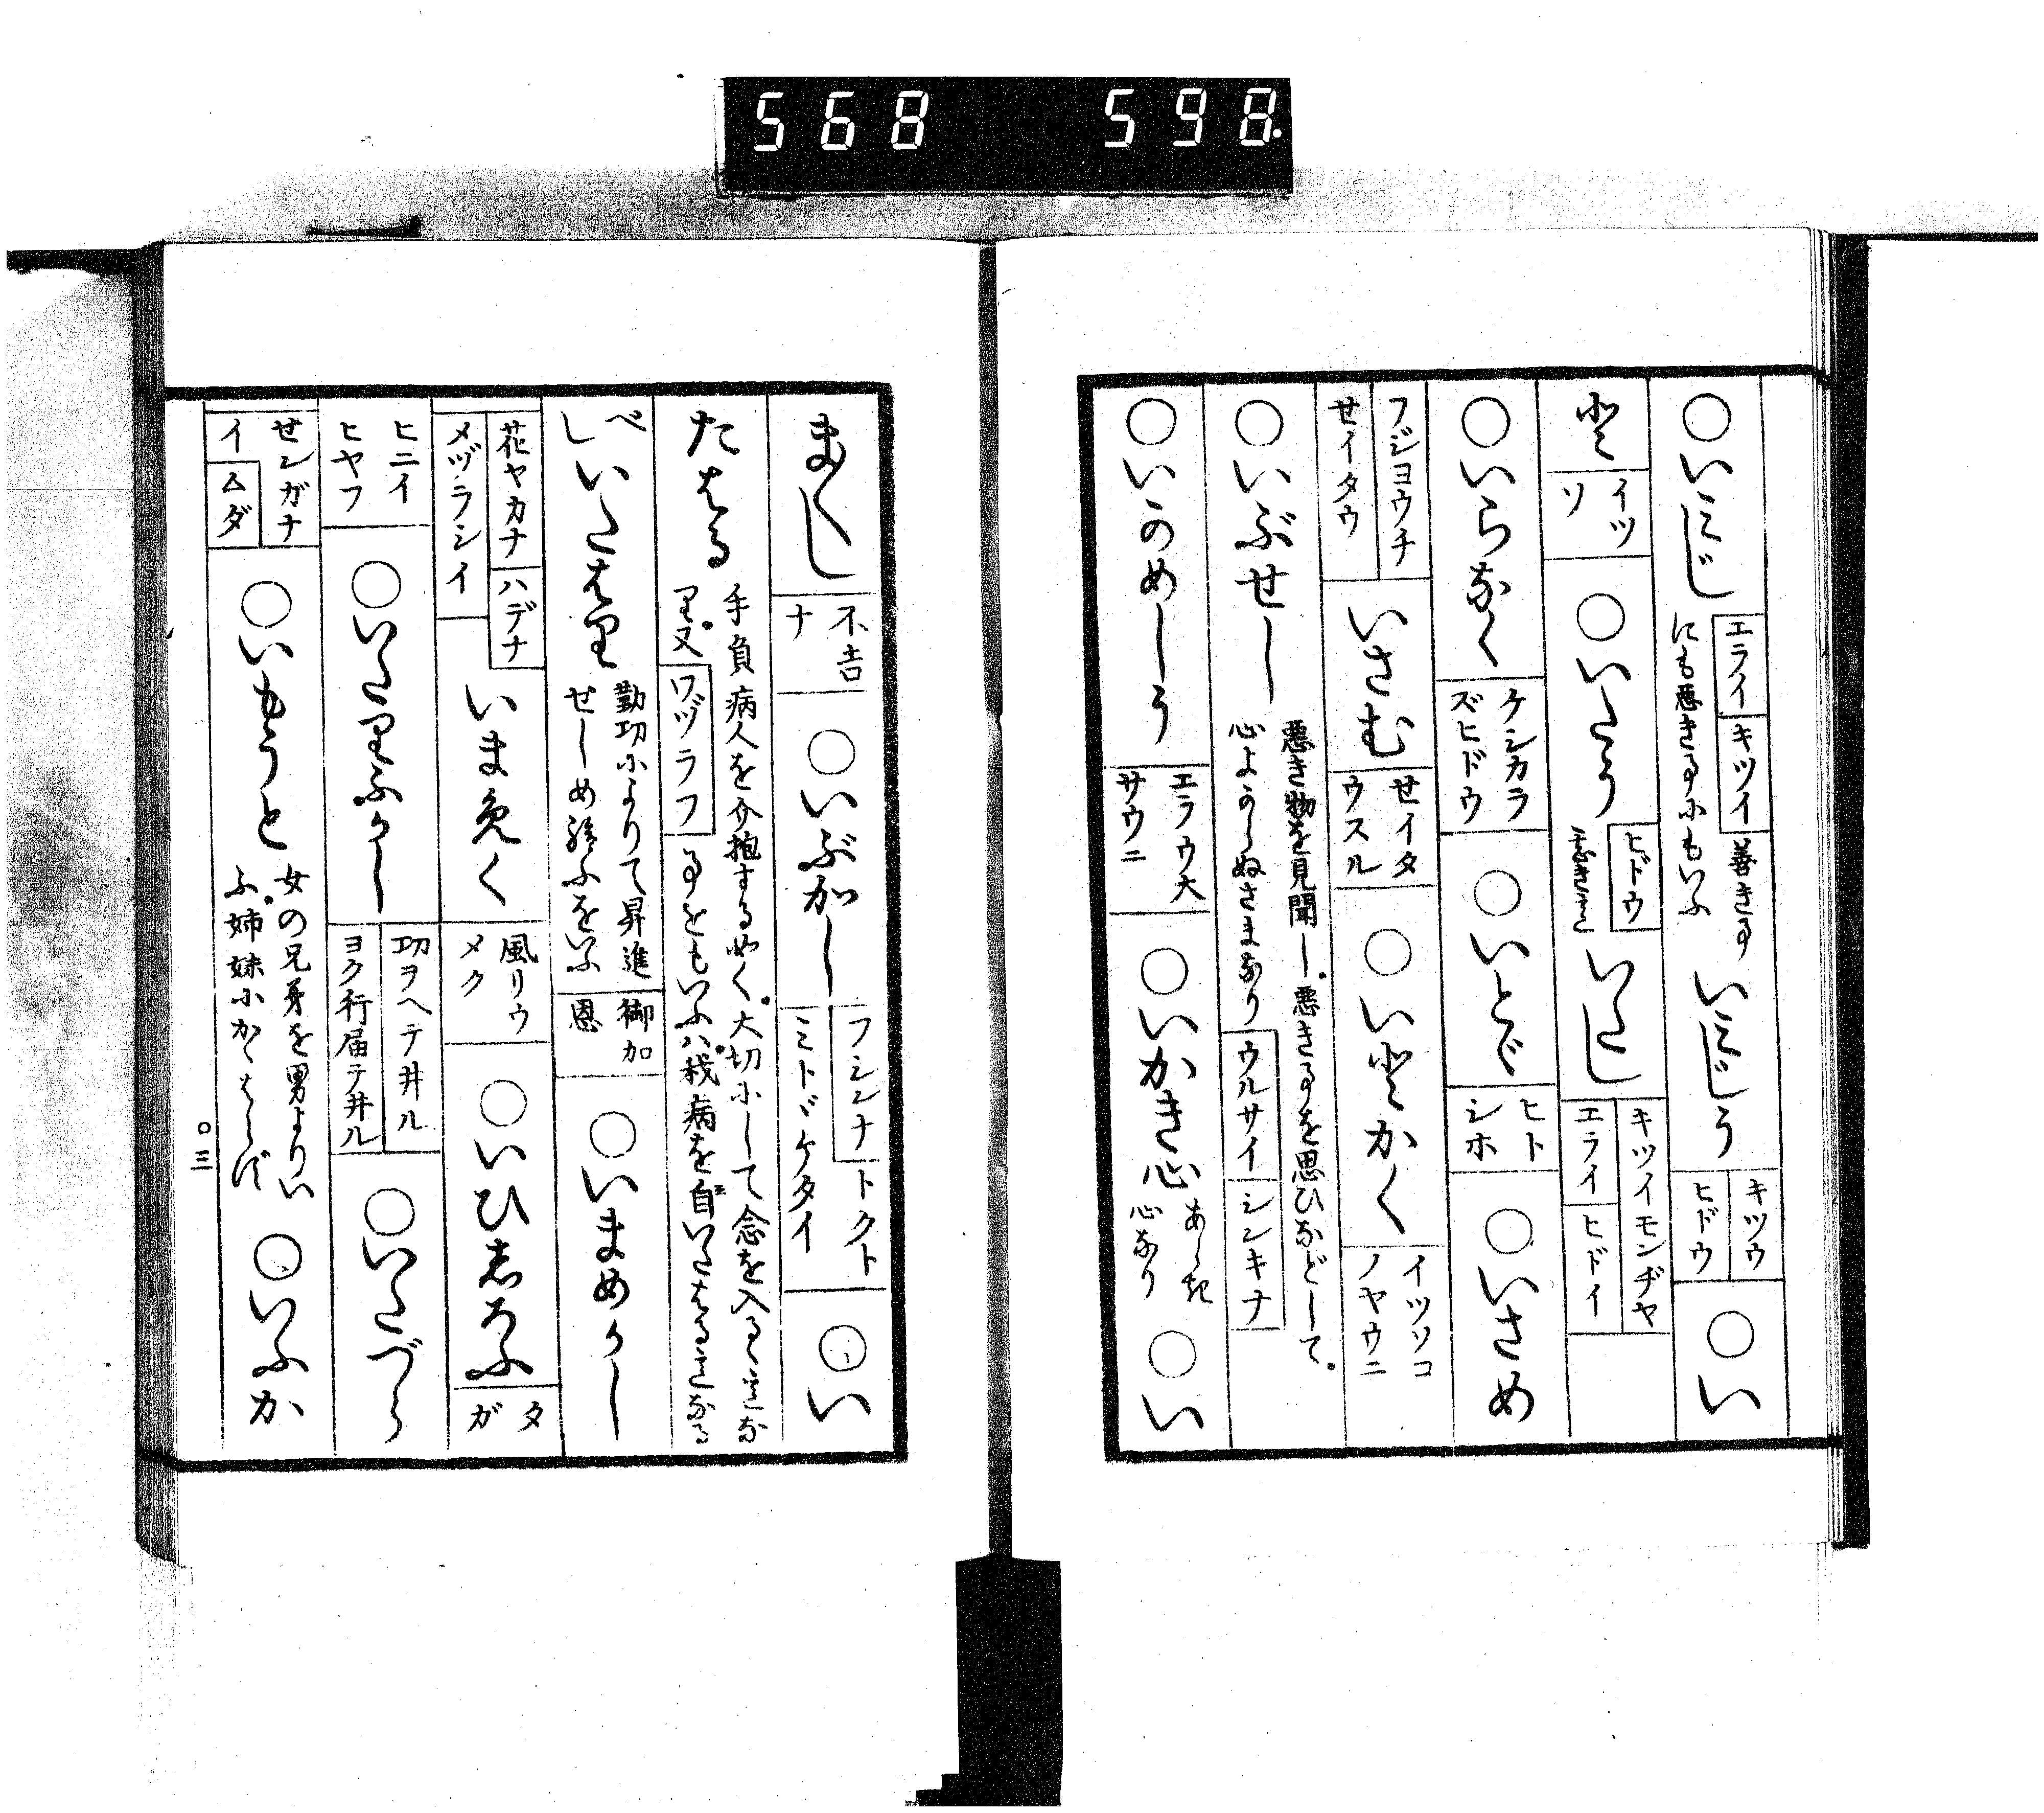 568 598
〇いミじ エライ キツイ 善き事
にも悪き事にもいふ いミじう キツウ
ヒドウ 〇い
とゞ イツ
ソ 〇いたう ヒドウ
いたし キツイモンヂヤ
エライ ヒドイ
〇いらなく ケシカラ
ズヒドウ 〇いとゞ ヒト
シホ 〇いさめ
フジヨウチ
せイタウ いさむ せイタ
ウスル 〇いとかく イツソコ
ノヤウニ
〇いぶせし 悪き物を見聞し。悪き事を思ひなどして。
心よからぬさまなり ウルサイ シンキナ
〇いかめしう エラウ大
サウニ 〇いかき心 あらき
心なり 〇い
ま〳〵し 不吉
ナ 〇いぶかし フシンナ トクト
ミトヾケタイ 〇い
たはる 手負病人を介抱する如く。大切にして念を入るゝ
里又 ワヅラフ 事をもいふハ我病を自いたはる
べ
し いたはり 勤功によりて昇進
せしめ給ふをいふ 御加
恩 〇いまめかし
花ヤカナ ハデナ
メヅラシイ いまめく 風リウ
メク 〇いひしろふ タ
ガ
ヒニイ
ヒヤフ 〇いたりふかし 功ヲヘテ井ル
ヨク行届テ井ル 〇いたづら
せンガナ
イ ムダ 〇いもうと 女の兄弟を男よりい
ふ。姉妹にかゝはらず 〇いふか
〇三